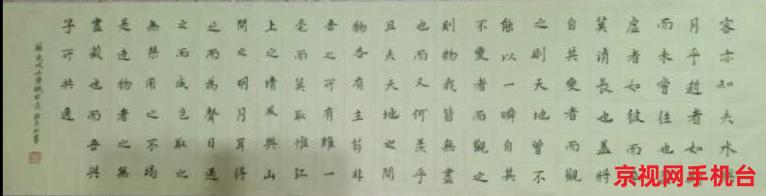 客亦知夫水與
月乎逝者如斯
而未嘗往也盈
虛者如彼而卒
莫消長也蓋將
自其變者而觀
之則天地曾不
能以一瞬自其
不變者而觀之
則物我皆無盡
也而又何羨乎
且夫天地之間
物各有主苟非
吾之所有雖一
毫而莫取惟江
上之清風與山
間之明月耳得
之而為聲目遇
之而成色取之
無禁用之不竭
是造物者之無
盡藏也而吾與
子所共適
蘇東坡
京视网手机台